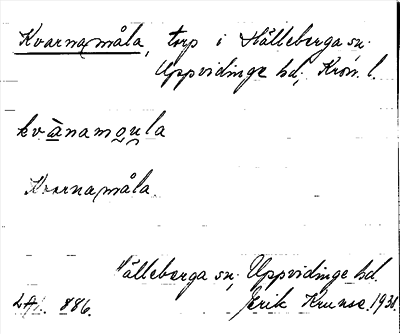 Kvarnamåla, torp i Hälleberga sn.
Uppvidinge hd, Kron. l.
kvànamoula
Kvarnamåla.
Hälleberga sn, Uppvidinge hd.
886. Erik 193